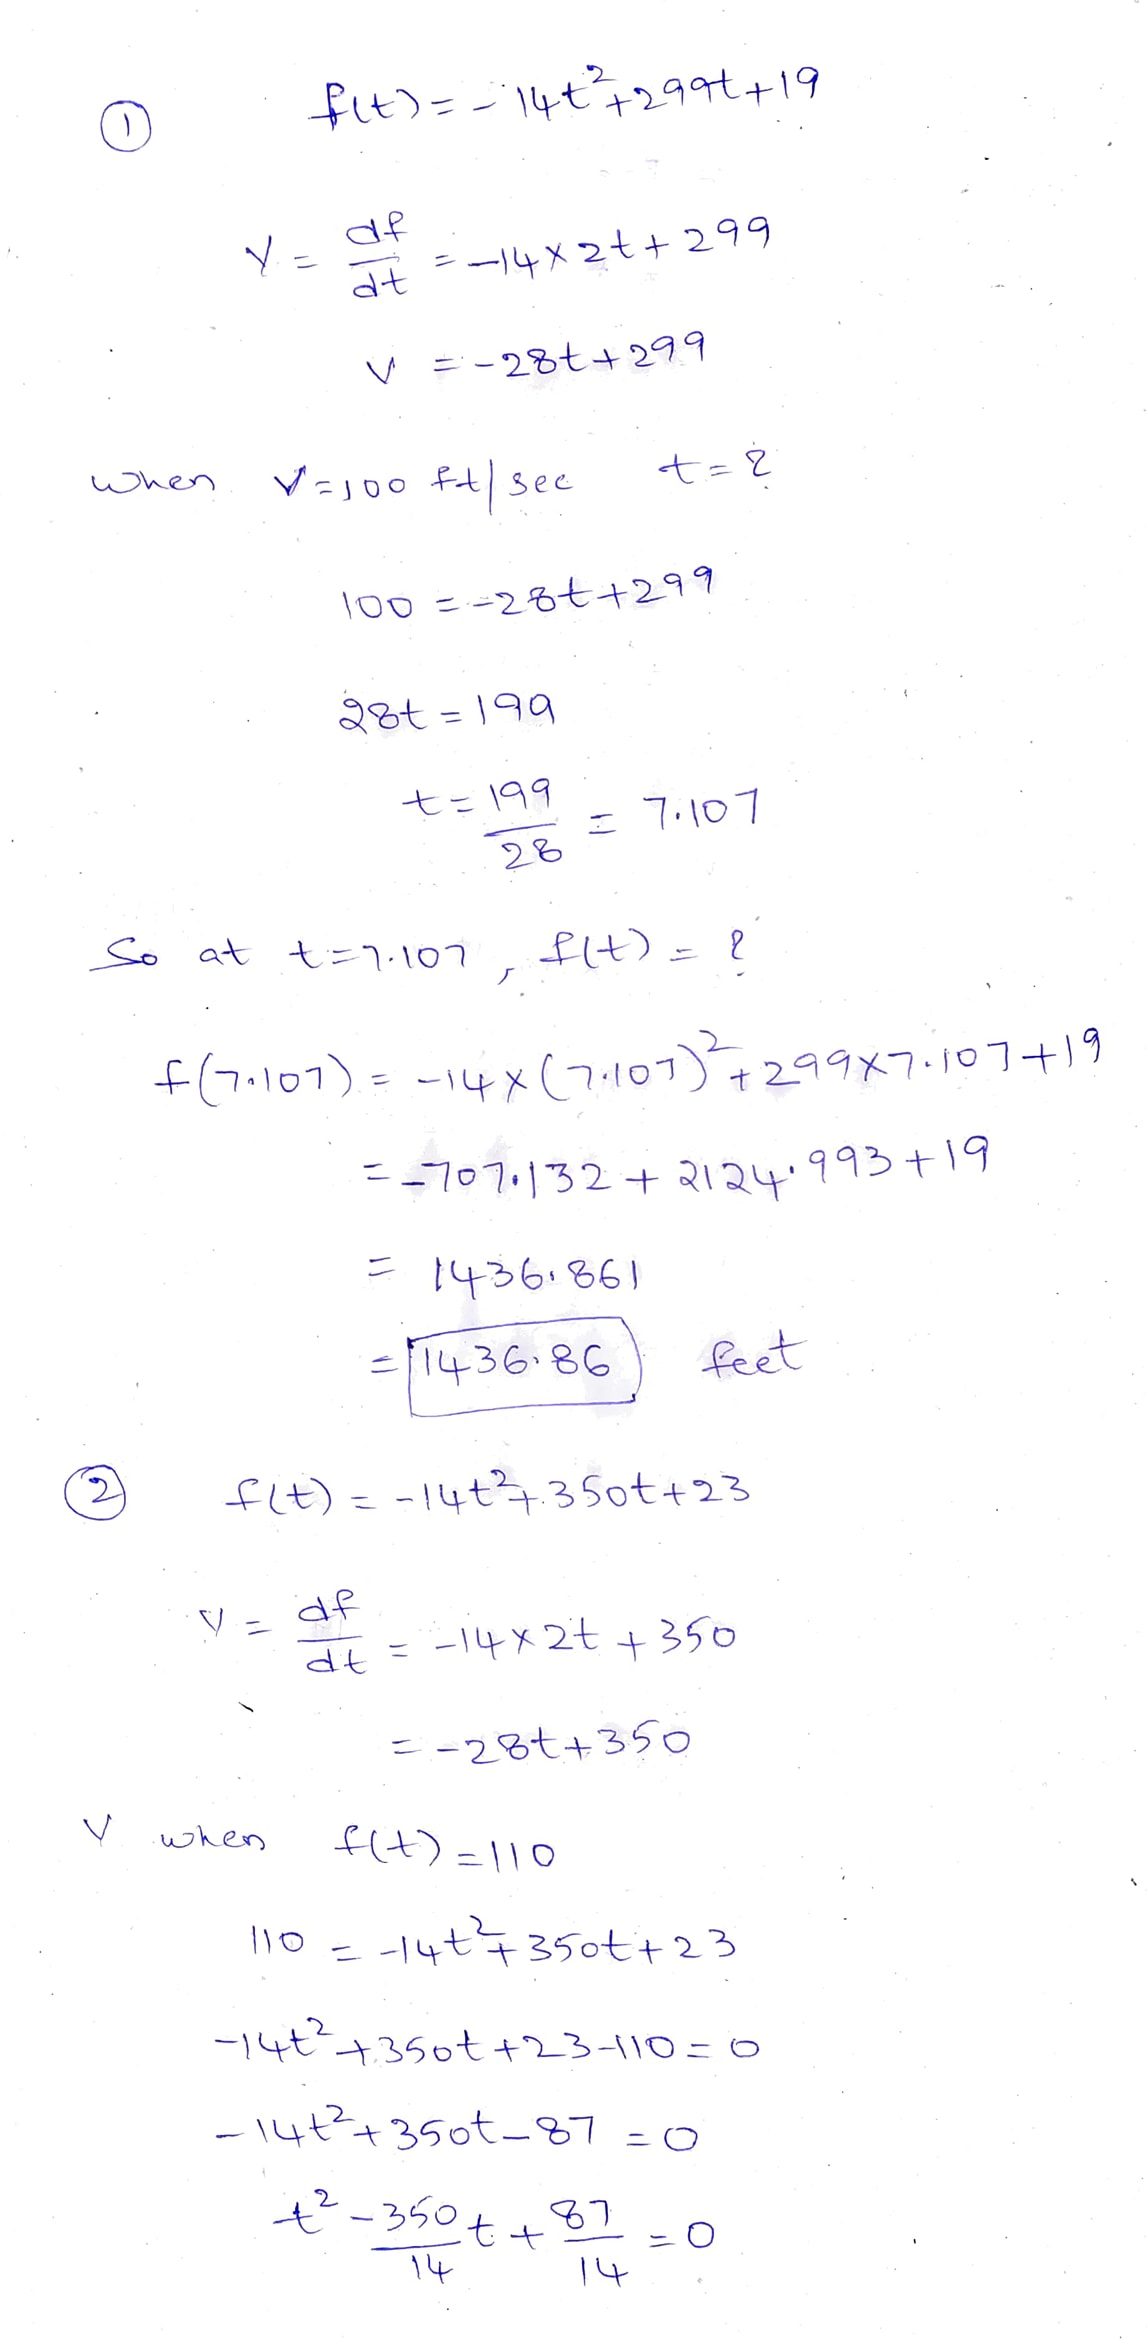 ① f(t) = -14t²+299t+19
V = df/dt = -14×2t+299
V = -28t+299
when V=100 ft/sec t=?
100 = -28t+299
28t = 199
t = 199/28 = 7.107
So at t=7.107, f(t) = ?
f(7.107) = -14×(7.107)²+299×7.107+19
= -707.132 + 2124.993+19
= 1436.861
= 1436.86 feet
② f(t) = -14t²+350t+23
V = df/dt = -14×2t+350
= -28t+350
V when f(t)=110
110 = -14t²+350t+23
-14t²+350t+23-110=0
-14t²+350t-87=0
t²-350/14 t + 87/14 = 0